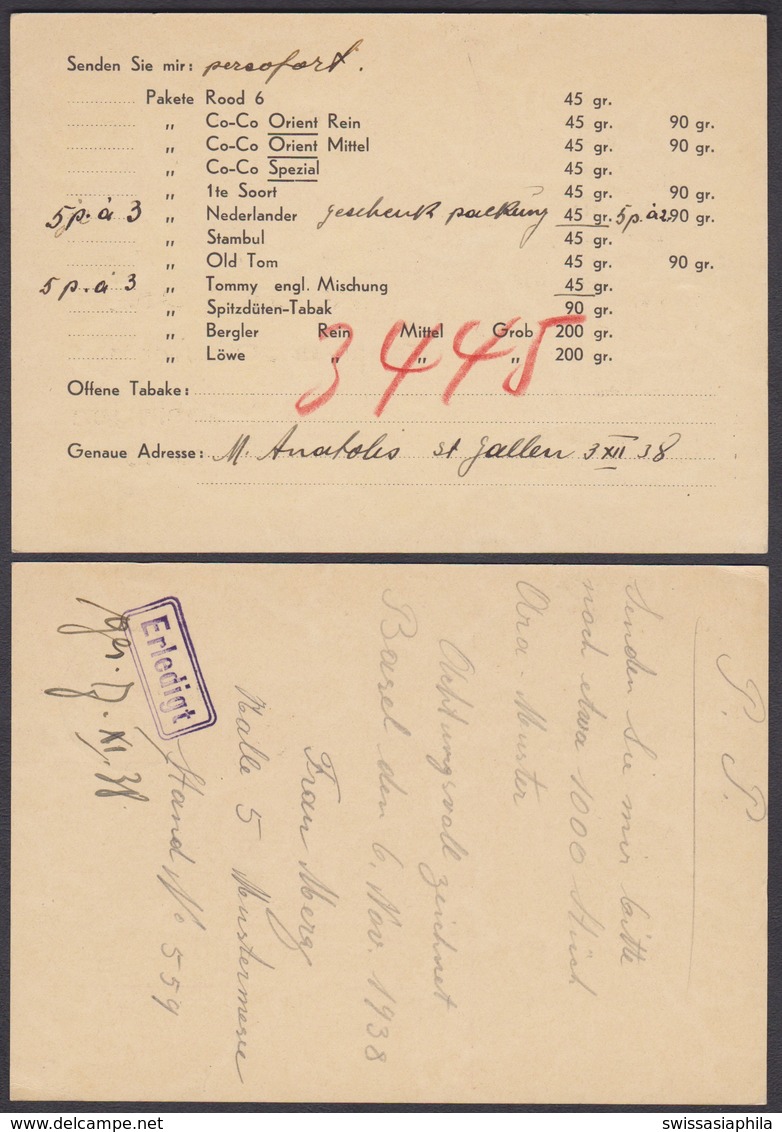 Senden Sie mir: per sofort.
Pakete Rood 6 45 gr.
„ Co-Co Orient Rein 45 gr. 90 gr.
„ Co-Co Orient Mittel 45 gr. 90 gr.
„ Co-Co Spezial 45 gr.
„ 1te Soort 45 gr. 90 gr.
5 p. à 3 „ Nederlander geschenk packung 45 gr. 5 p. à 2 90 gr.
„ Stambul 45 gr.
„ Old Tom 45 gr. 90 gr.
5 p. à 3 „ Tommy engl. Mischung 45 gr.
„ Spitzdüten-Tabak 90 gr.
„ Bergler Rein Mittel Grob 200 gr.
„ Löwe „ „ „ 200 gr.
3445
Offene Tabake:
Genaue Adresse: M. Anatolis St Gallen 3 XII 38
P. P.
Senden Sie mir bitte
noch etwa 1000 Stück
Ara-Muster
Achtungsvoll zeichnet
Basel den 6. Nov. 1938
Frau Merg
Halle 5 Mustermesse
Stand No 559
Erledigt
XI. 38
delcampe.net
swissasiaphila